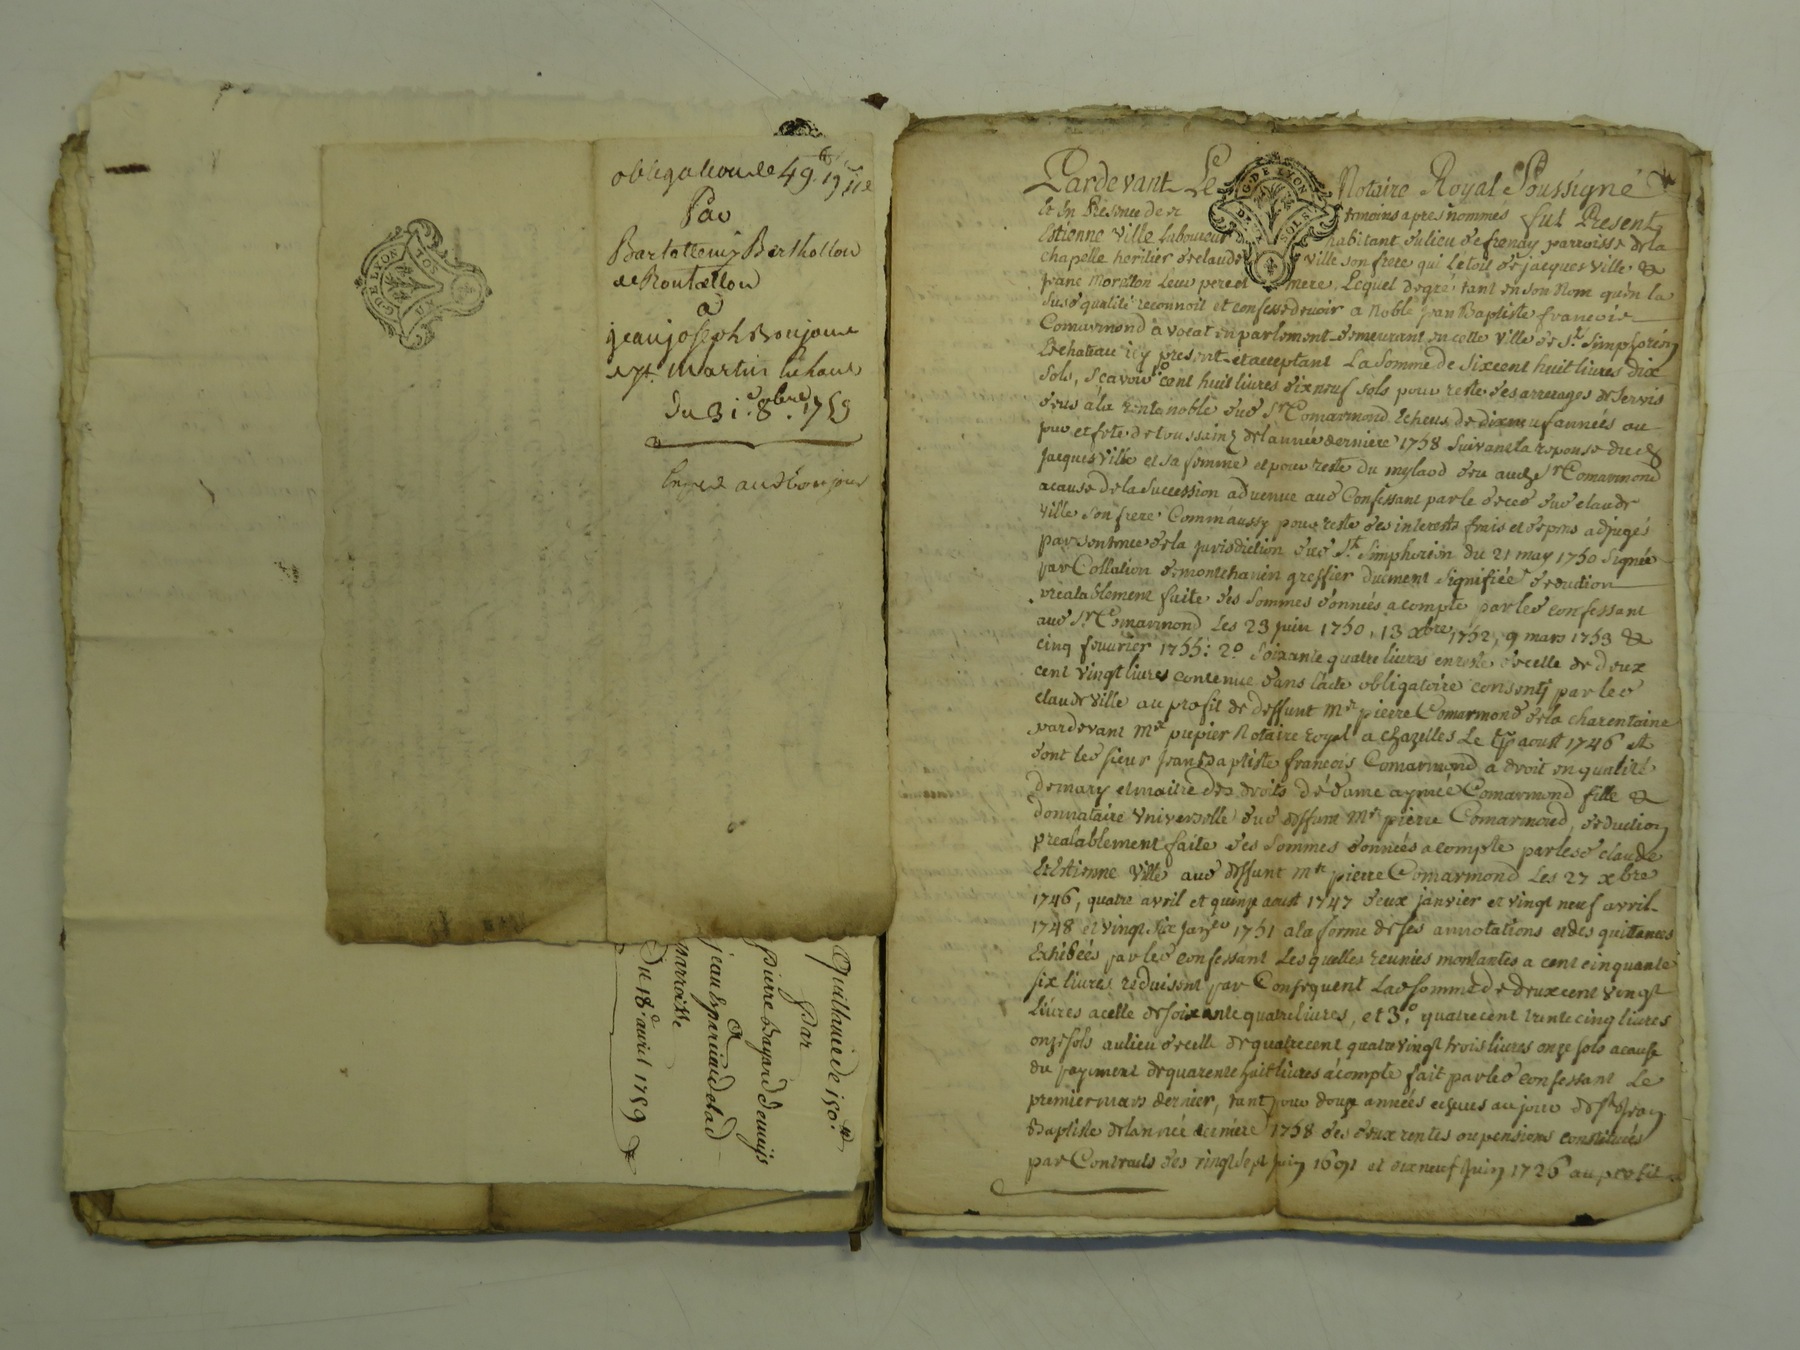 obligation de 49 ₶ 19 s 11 d
Par
Barthelemy Berthollon
de Rontallon
a
jean joseph Bonjour
de St. Martin lûhaut
Du 31.e 8bre. 1759
Quittance de 150 ₶
Par
pierre Bayard demeijs
a
jean
parroisse
Du 18.e avril 1759
G. DE LYON
DEUX SOLS
Pardevant Le Notaire Royal Soussigné
Et En Présence des temoins apres nommés fut Present
Estienne Ville Laboureur habitant du lieu de frenay parroisse de la
chapelle heritier de claude Ville son frere qui l'etoit de jacques Ville &
jeane Morillon Leur pere et mere, Lequel degré tant en son Nom qu'en la
susd qualité reconnoit et confesse devoir a Noble jean Baptiste francois
Comarmond avocat en parlement demeurant en cette Ville de St. Simphorien
Lechateau icy present et acceptant La Somme de Six cent huit livres dix
sols, sçavoir 1o cent huit livres dix neuf sols pour reste des arrerages de servis
deus a la rente noble dud Sr. Comarmond Echeus de dix neuf années au
jour et fete de toussaint de l'année derniere 1758 suivant la reponse dud
jacques Ville et sa femme et pour reste du mylaod deu aud Sr. Comarmond
a cause de la succession advenue aud Confessant par le deces dud claude
Ville son frere Comm'aussy pour reste des interests frais et depens adjugés
par sentence de la jurisdiction dud St. Simphorien du 21 may 1750 signée
par Collation demontchanin greffier duement signifiée deduction
prealablement faite des sommes données a compte par led confessant
aud Sr. Comarmond Les 23 juin 1750, 13 xbre 1752, 9 mars 1753 &
cinq fevurier 1755: 2o Soixante quatre livres en reste de celle de deux
cent vingt livres contenue dans l'acte obligatoire consenty par led
claude Ville au profit de deffunt Mr. pierre Comarmond de la charentaine
pardevant Me. pupier Notaire royal a chazelles Le aoust 1746 et
dont led sieur jean Baptiste francois Comarmond a droit en qualité
de mary et maitre des droits de dame aymée Comarmond fille &
donnataire Universelle dud deffunt Mr. pierre Comarmond, deduction
prealablement faite des sommes données a compte par lesd claude
Et Estienne Ville aud deffunt Mr. pierre Comarmond Les 27 xbre
1746, quatre avril et quinze aoust 1747 deux janvier et vingt neuf avril
1748 et vingt six janer 1751 a la forme de ses annotations et des quittances
Exhibées par led confessant Lesquelles reunies montantes a cent cinquante
six livres reduisent par Consequent Lad somme de deux cent vingt
Livres a celle de soixante quatre livres, et 3o. quatre cent trente cinq livres
onze sols au lieu de celle de quatre cent quatre vingt trois livres onze sols a cause
du payement de quarente huit livres a compte fait par led confessant Le
premier mars dernier, tant pour douze années echues au jour de St. Jean
Baptiste de l'année derniere 1758 des deux rentes ou pensions constituées
par Contrats des vingt sept juin 1691 et dix neuf juin 1726 au profit